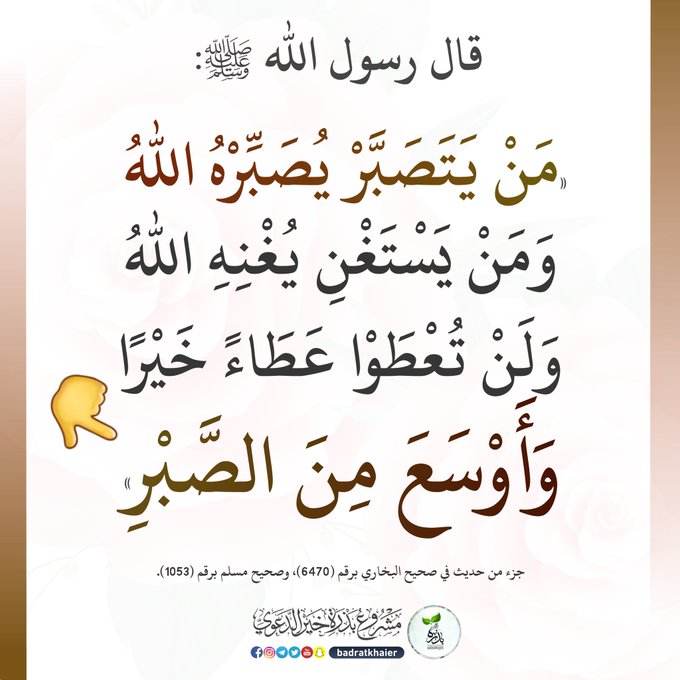 قال رسول الله ﷺ:
((مَنْ يَتَصَبَّرْ يُصَبِّرْهُ اللهُ
وَمَنْ يَسْتَغْنِ يُغْنِهِ اللهُ
وَلَنْ تُعْطَوْا عَطَاءً خَيْرًا
وَأَوْسَعَ مِنَ الصَّبْرِ))
جزء من حديث في صحيح البخاري برقم (6470)، وصحيح مسلم برقم (1053).
مشروع بذرة خير الدعوي
badratkhaier
بذرة